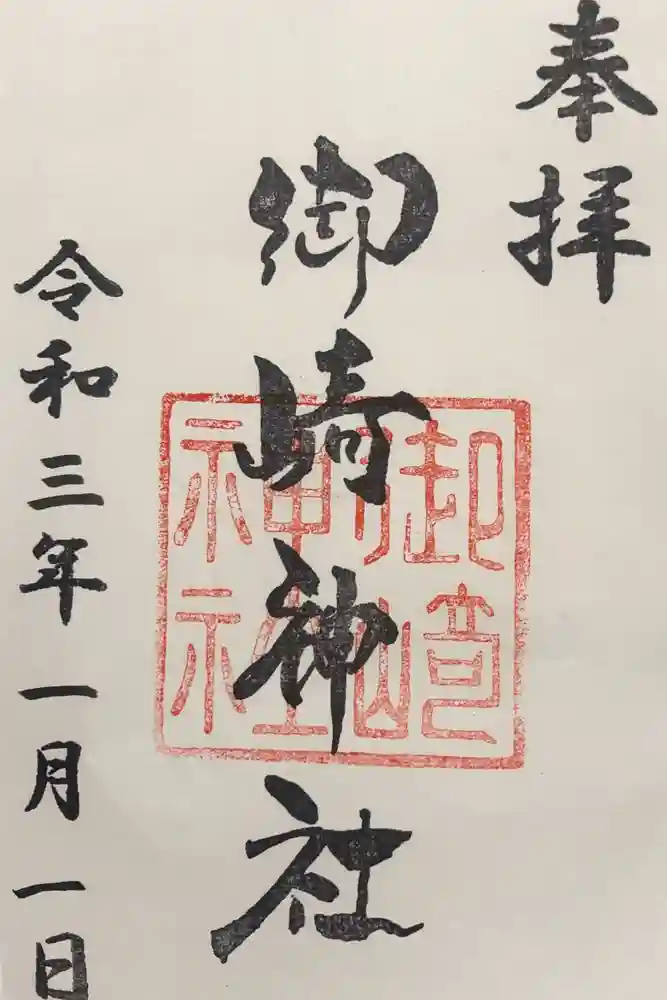 奉拝
御崎神社
御崎
神社
令和三年一月一日